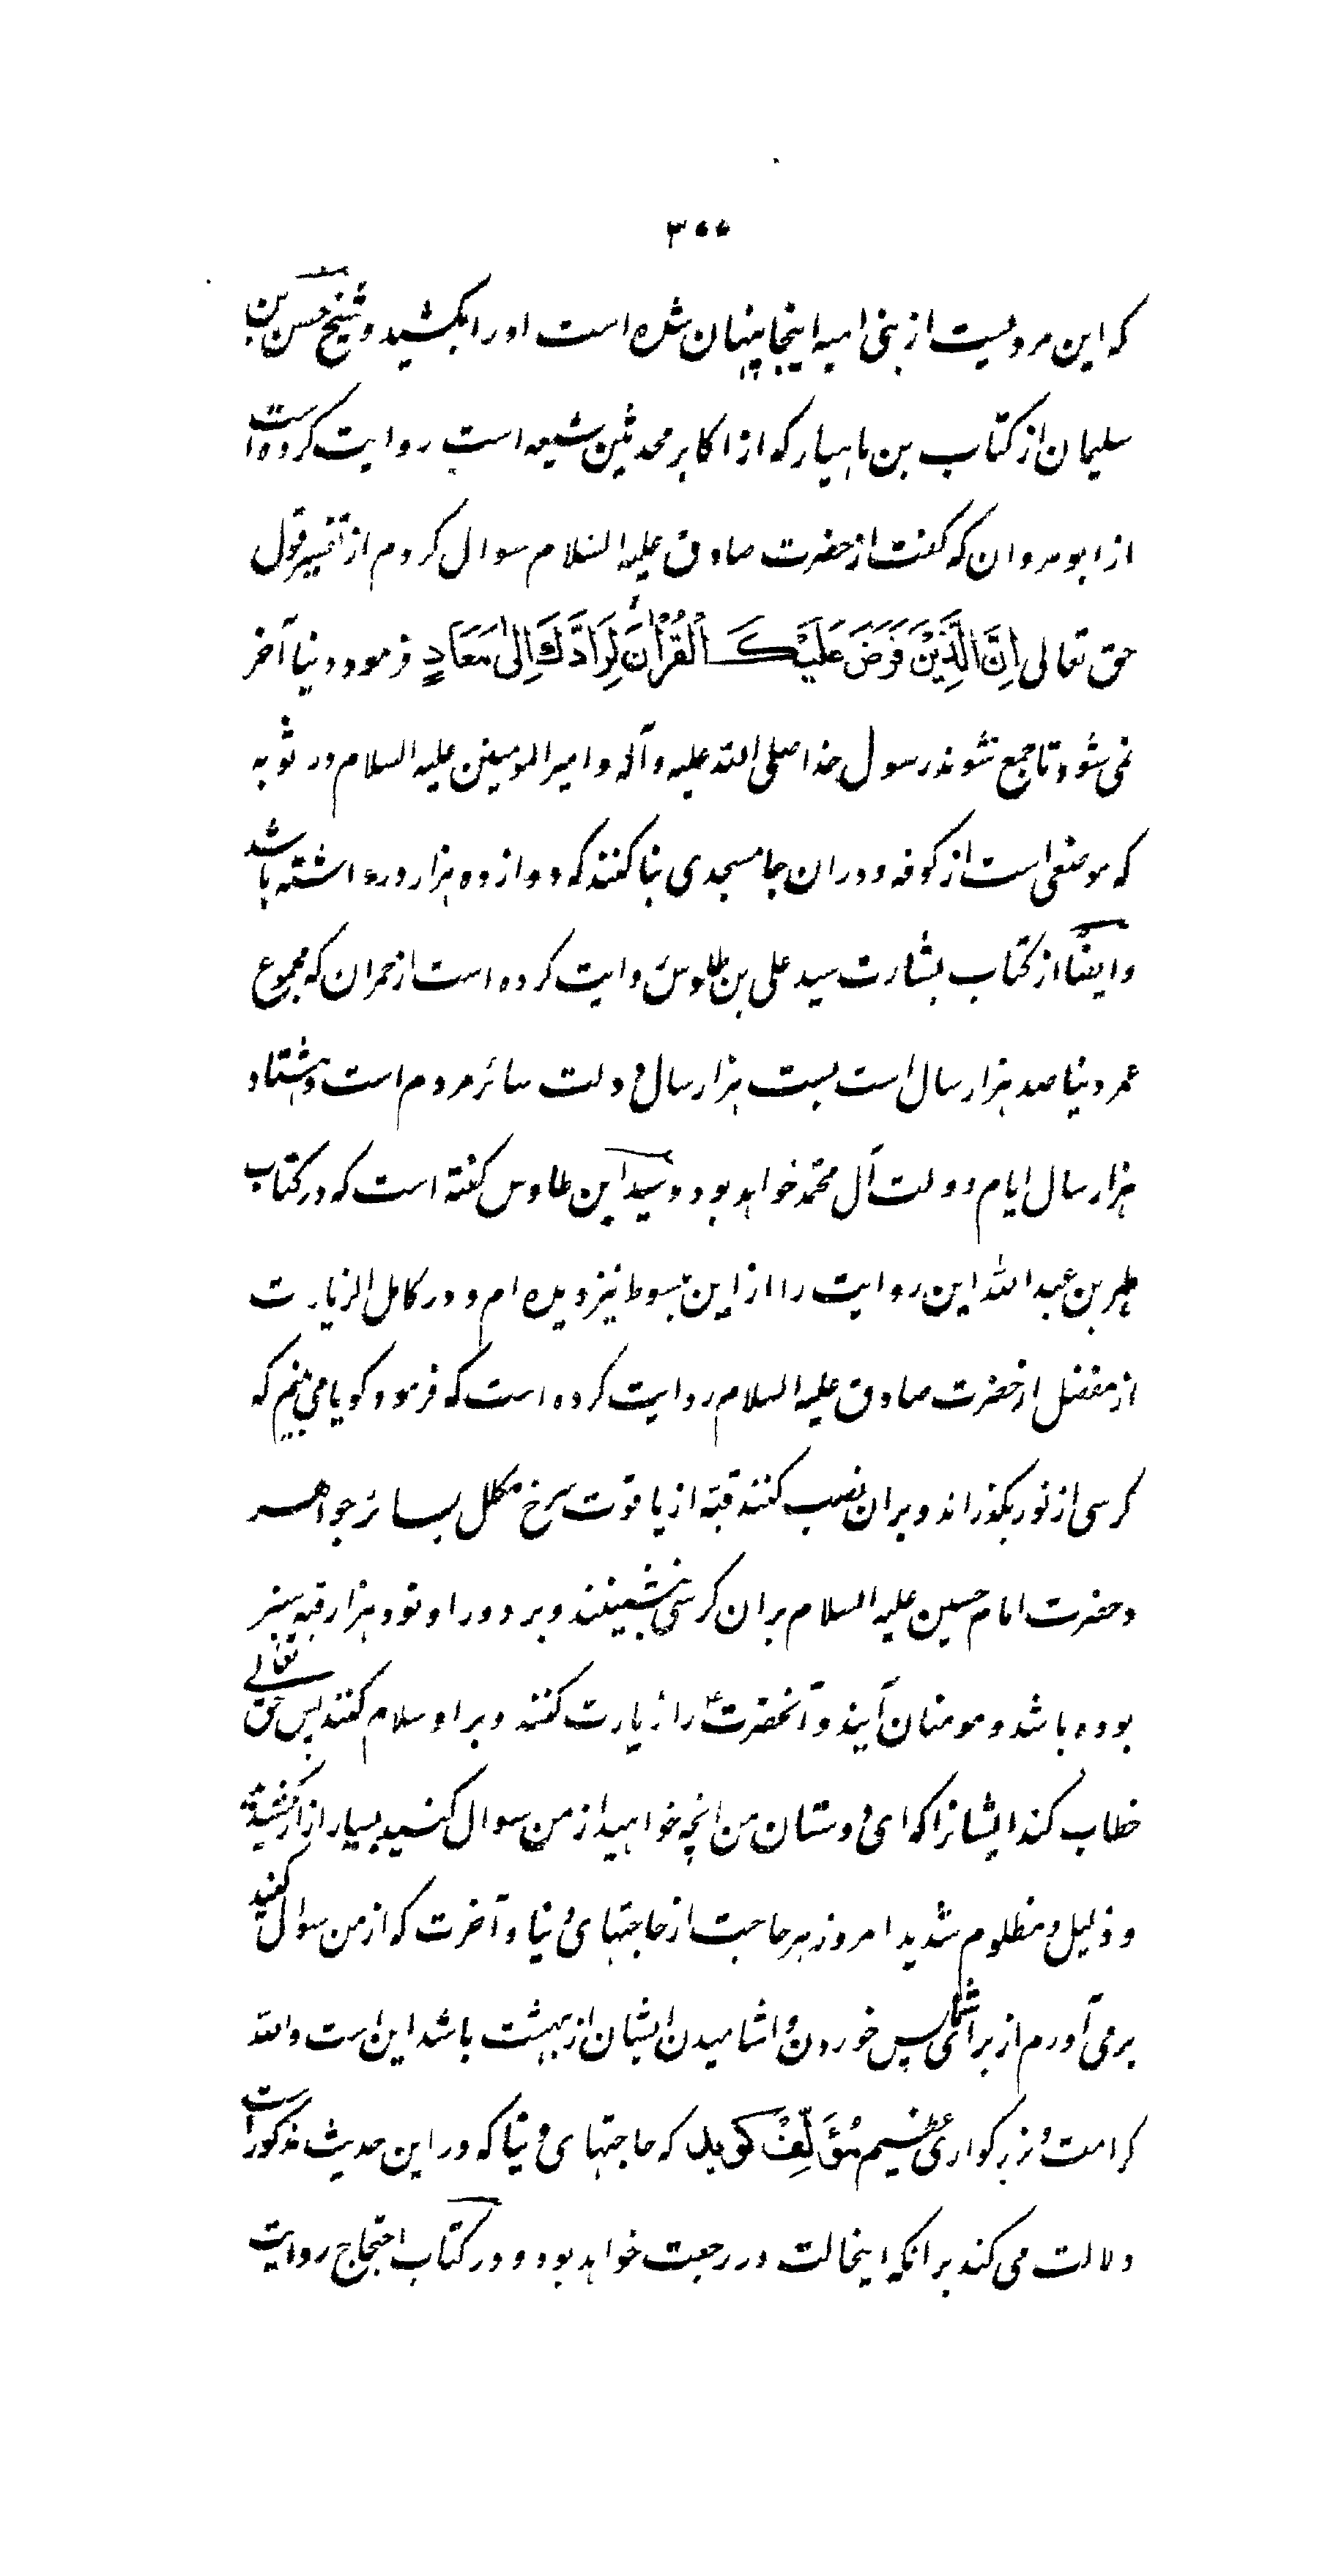 ۳۰۰
که این مردیست از بنی امیه اینجا پنهان شده است اورا بکشید و شیخ حسن بن
سلیمان از کتاب بن ماهیار که از اکابر محدثین شیعه است روایت کرده است
از ابو مروان که گفت از حضرت صادق علیه السلام سوال کردم از تفسیر قول
حق تعالی اِنَّ الَّذِیْنَ فَرَضَ عَلَیْكَ الْقُرْاٰنَ لَرَادُّكَ اِلیٰ مَعَادٍ فرمود دنیا آخر
نمی شود تا جمع شوند رسول خدا صلی الله علیه وآله و امیر المومنین علیه السلام در ثویه
که موضعی است از کوفه و دران جا مسجدی بنا کنند که دوازده هزار در داشته باشد
و ایضًا از کتاب بشارت سید علی بن طاوس روایت کرده است از حمران که مجموع
عمر دنیا صد هزار سال است بست هزار سال دولت سائر مردم است و هشتاد
هزار سال ایام دولت آل محمّد خواهد بود و سید ابن طاوس گفته است که در کتاب
طهر بن عبد الله این روایت را از این مبسوط نیز دیده ام و در کامل الزیارت
از مفضل از حضرت صادق علیه السلام روایت کرده است که فرمود گویا می بینم که
کرسی از نور بگذراند و بران نصب کنند قبّه از یاقوت سرخ مکلل بسائر جواهر
و حضرت امام حسین علیه السلام بران کرسی نشینند و بر دور او نود هزار قبه سبز
بوده باشد و مومنان آیند و آنحضرتؑ را زیارت کنند و بر او سلام کنند پس حق تعالے
خطاب کند ایشانرا که ای دوستان من انچه خواهید از من سوال کنید بسیار آزار کشیده
و ذلیل و مظلوم شدید امروز هر حاجت از حاجتهای دنیا و آخرت که از من سوال کنید
برمی آورم از برای شما پس خوردن و اشامیدن ایشان از بهشت باشد این است والله
کرامت و بزرگواری عظیم مُؤَلِّفْ گوید که حاجتهای دنیا که در این حدیث مذکور است
دلالت می کند بر انکه اینحالت در رجعت خواهد بود و در کتاب احتجاج روایت